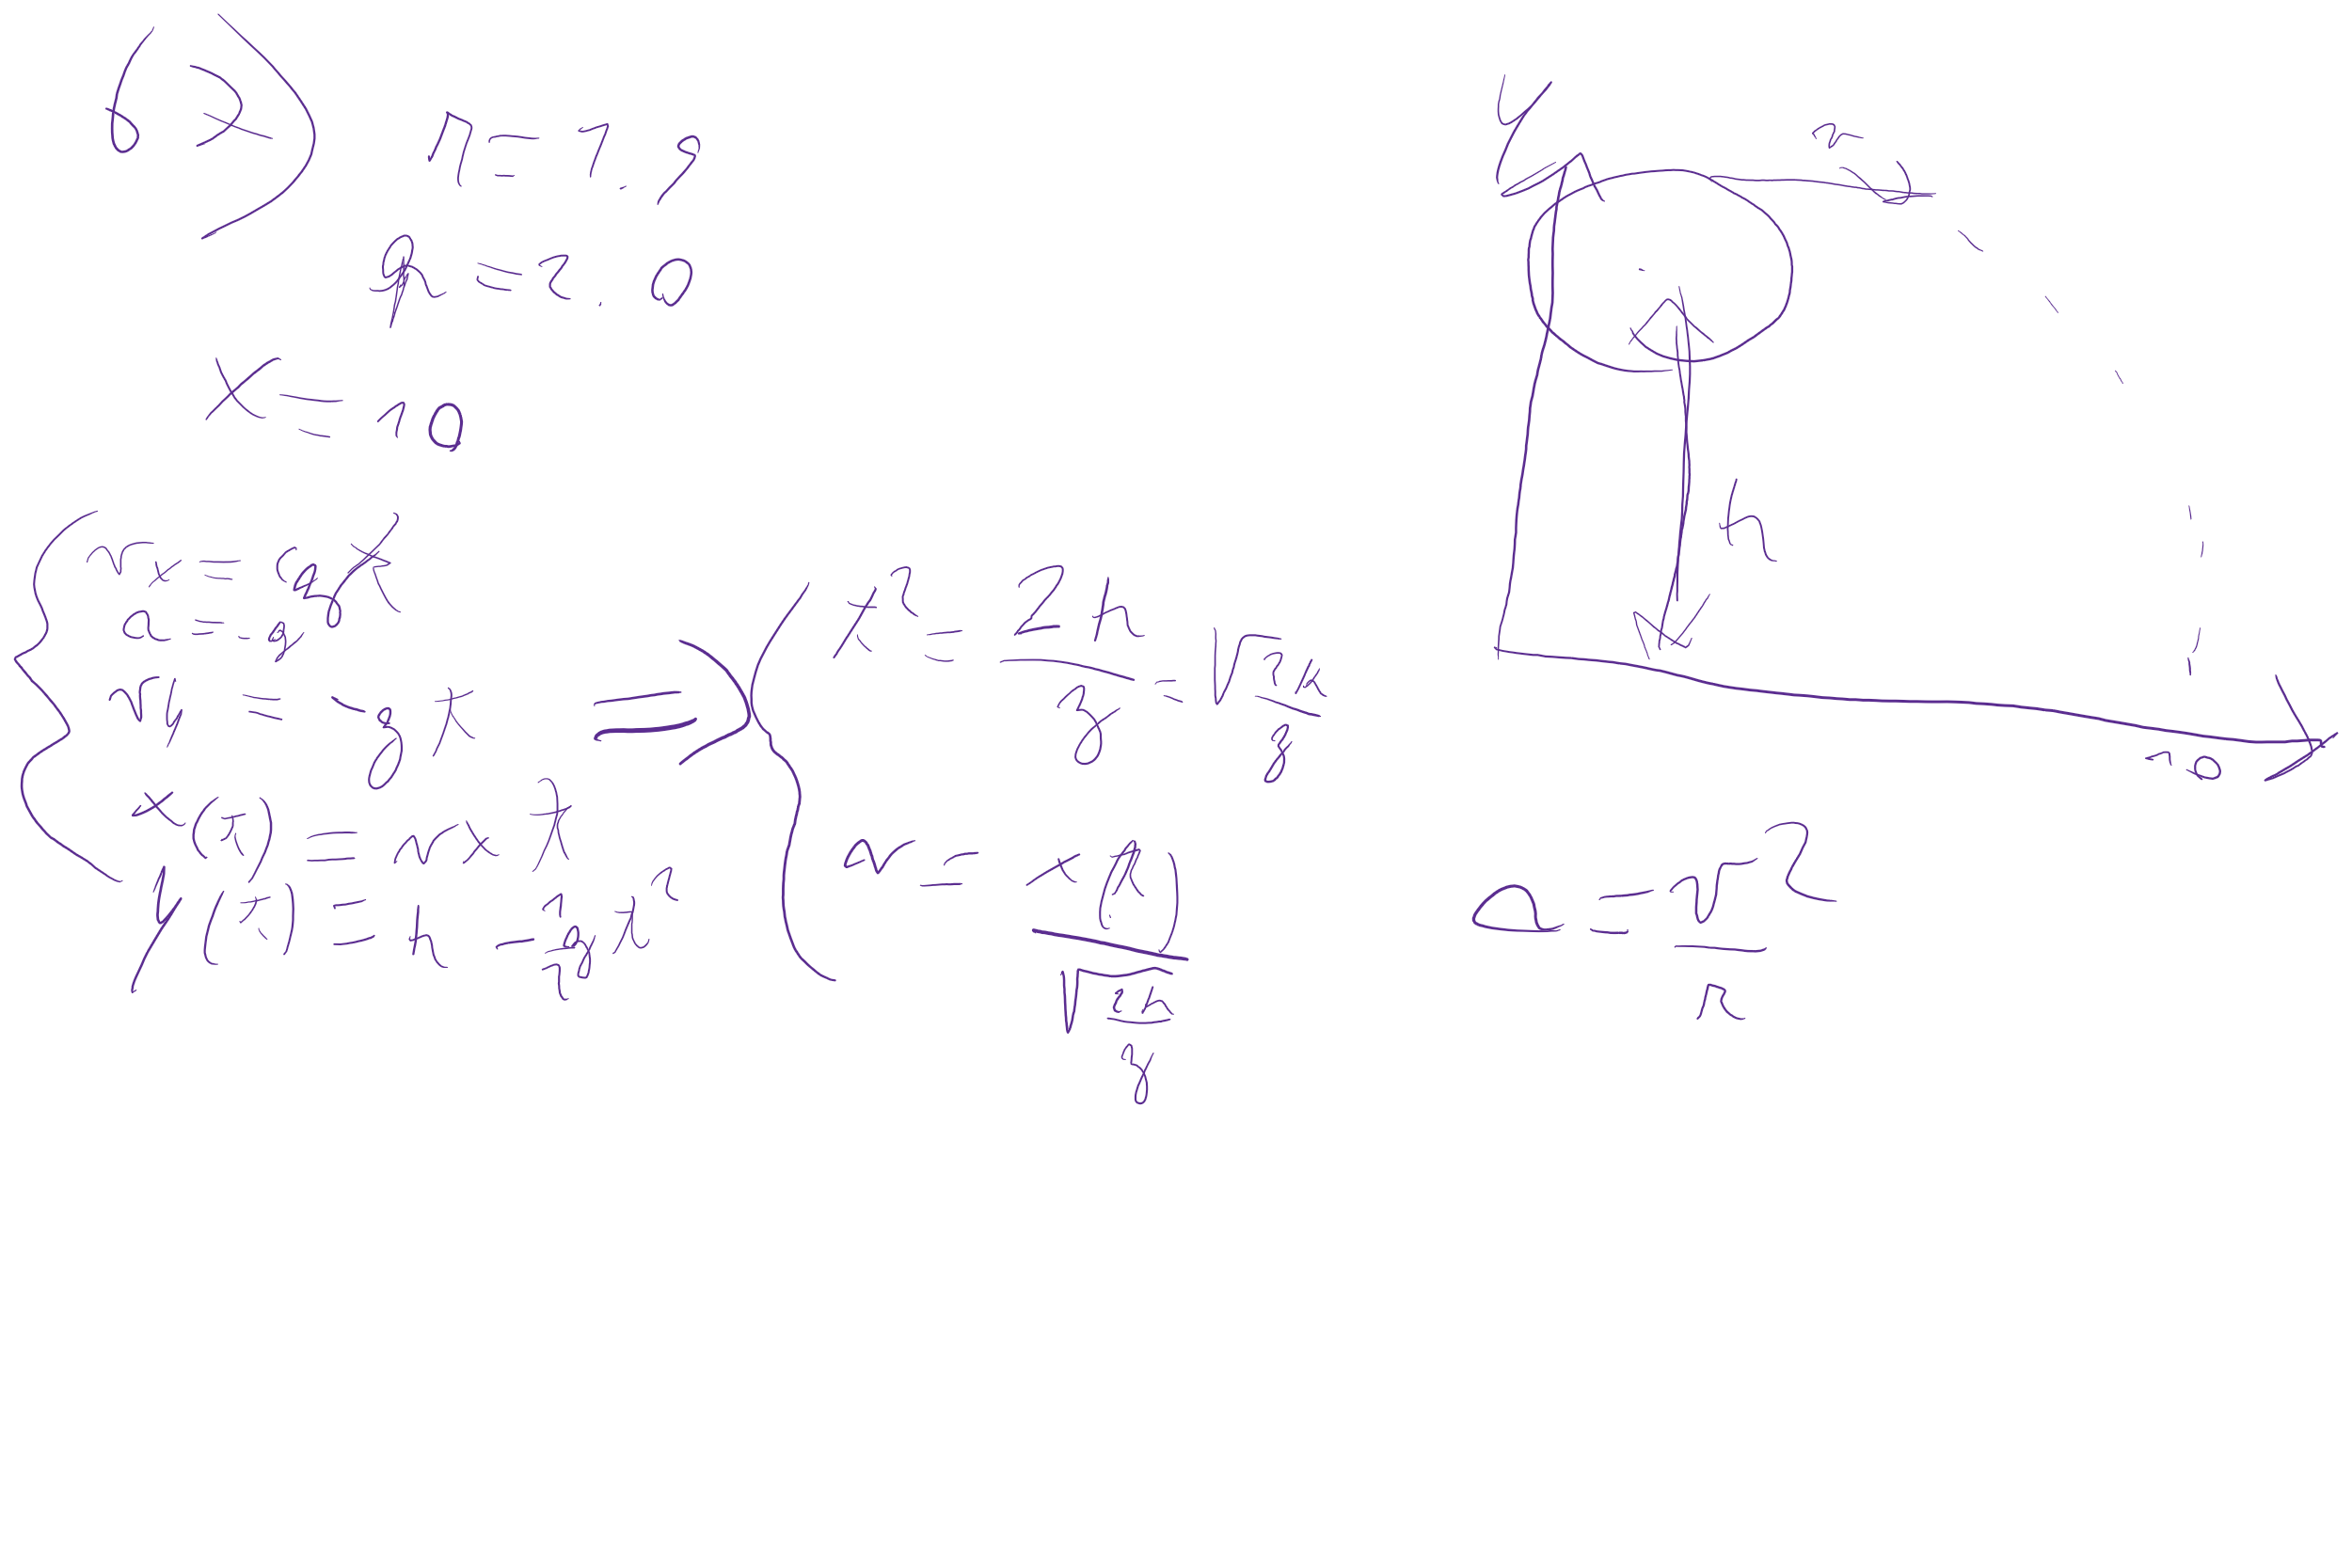 r = 1.9
h = 2.0
x = 10
a = -g
vy = -gt
x(t) = vx t
y(t) = h - 1/2 g t²
=>
t² = 2h/g = √2h/g
v = x(t)/√2h/g
y
v
h
10
a = v²/r